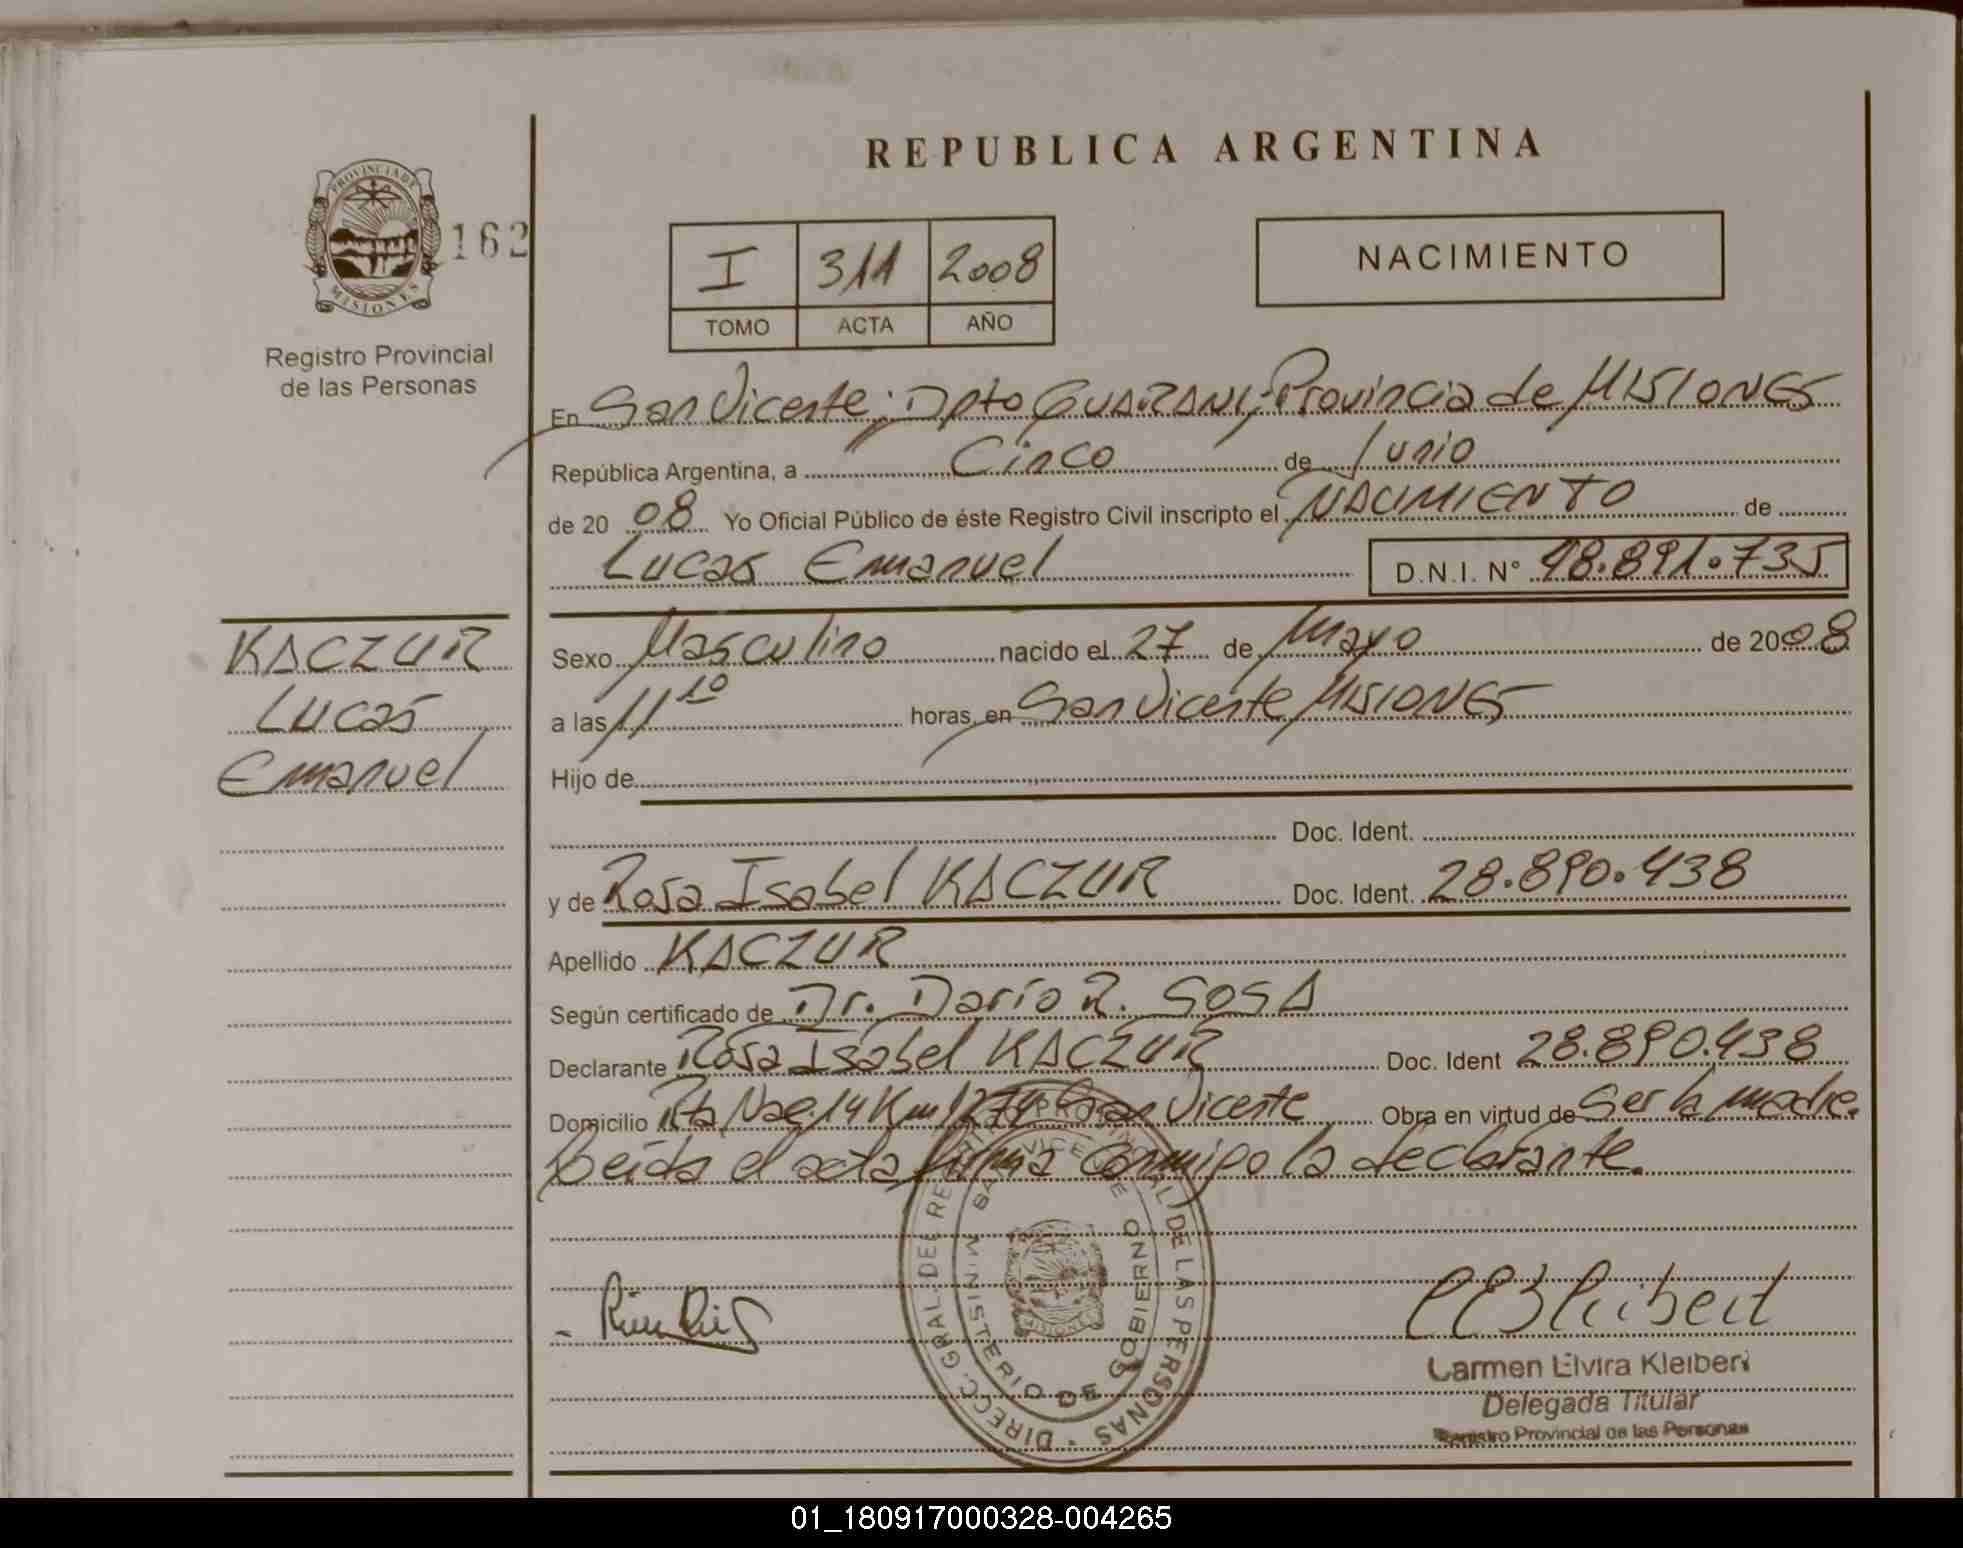 REPUBLICA ARGENTINA
PROVINCIA DE MISIONES
162
Registro Provincial
de las Personas
I 311 2008
TOMO ACTA AÑO
NACIMIENTO
En San Vicente; Dpto GUARANI; Provincia de MISIONES
República Argentina, a Cinco de Junio
de 20 08 Yo Oficial Público de éste Registro Civil inscripto el NACIMIENTO de
Lucas Emanuel D.N.I. N° 48.891.735
KACZUR
Lucas
Emanuel
Sexo Masculino nacido el 27 de Mayo de 2008
a las 11 10 horas, en San Vicente MISIONES
Hijo de
Doc. Ident.
y de Rosa Isabel KACZUR Doc. Ident. 28.890.438
Apellido KACZUR
Según certificado de Dr. Darío R. SOSA
Declarante Rosa Isabel KACZUR Doc. Ident 28.890.438
Domicilio Rta Nac. 14 Km 1274 San Vicente Obra en virtud de Ser la madre.
Leída el acta firma conmigo la declarante.
DIRECC. GRAL. DEL REGISTRO PROVINCIAL DE LAS PERSONAS
SAN VICENTE
MINISTERIO DE GOBIERNO
MISIONES
Carmen Elvira Kleibert
Delegada Titular
Registro Provincial de las Personas
01_180917000328-004265